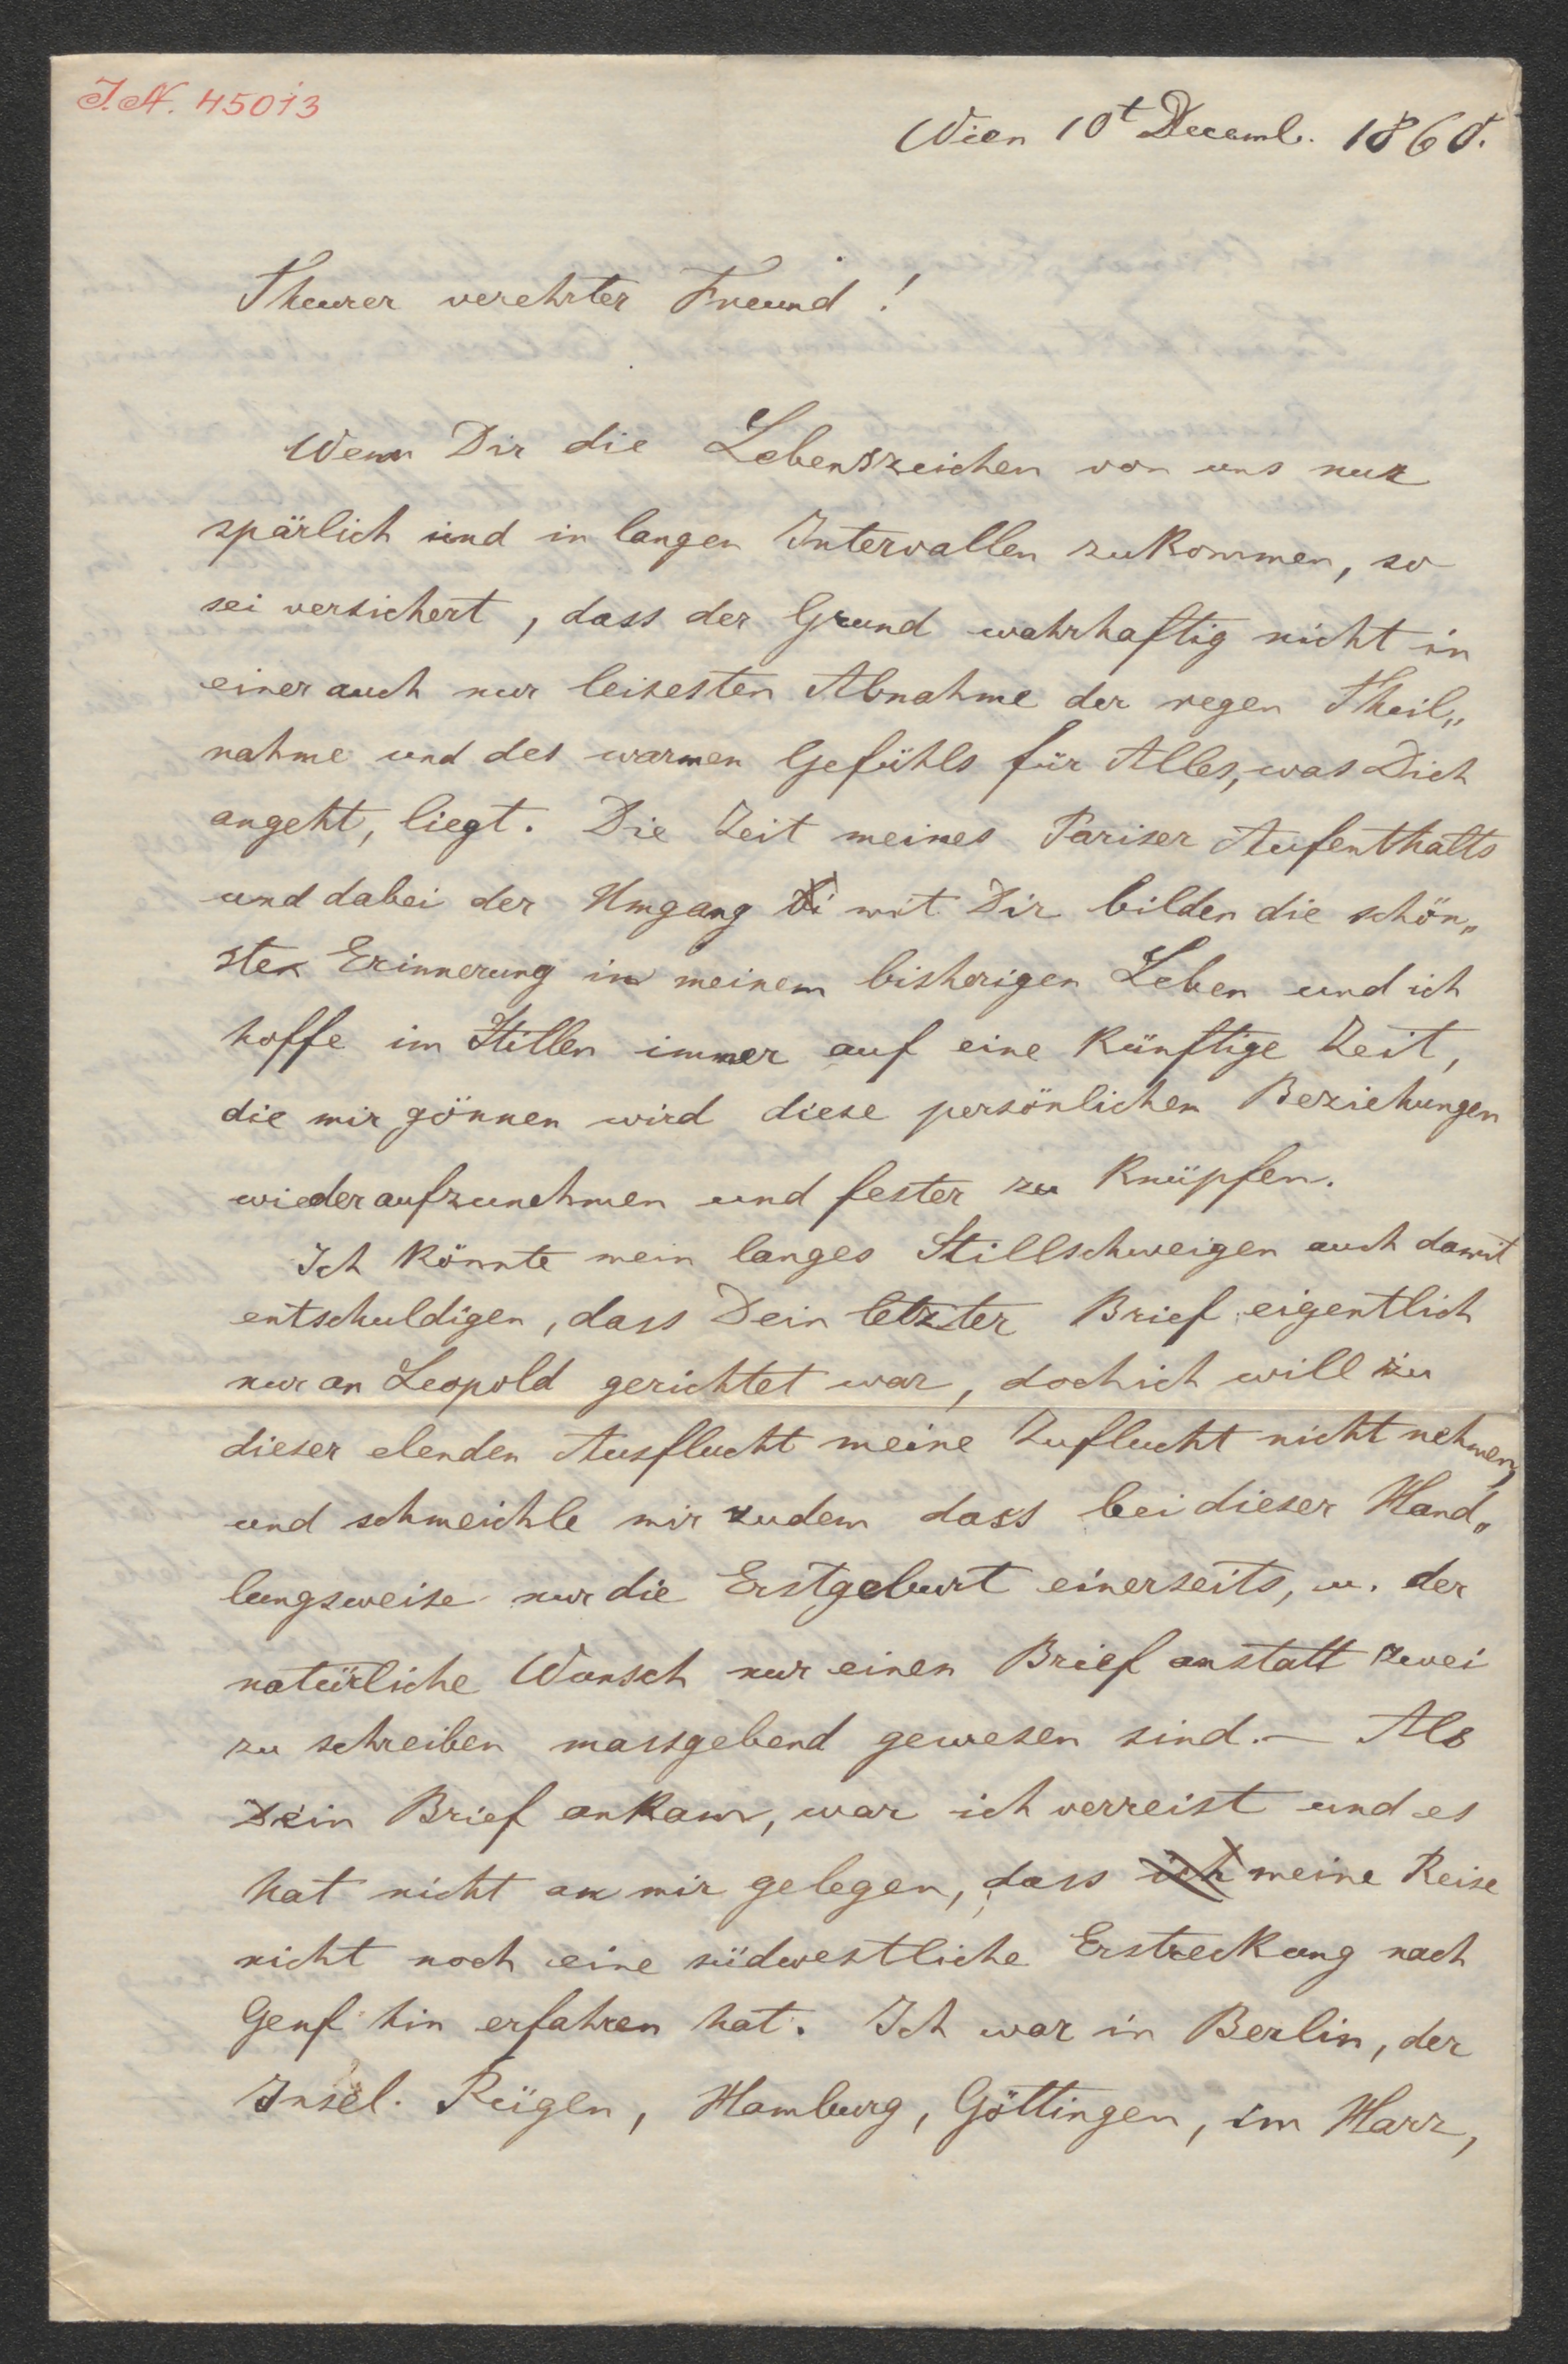 I.N. 45013
Wien 10t Decemb. 1860.
Theurer verehrter Freund !
Wenn Dir die Lebenszeichen von uns nur
spärlich und in langen Intervallen zukommen, so
sei versichert, dass der Grund wahrhaftig nicht in
einer auch nur leisesten Abnahme der regen Theil„
nahme und des warmen Gefühls für Alles, was Dich
angeht, liegt. Die Zeit meines Pariser Aufenthalts
und dabei der Umgang Di mit Dir bilden die schön„
sten Erinnerung in meinem bisherigen Leben und ich
hoffe im Stillen immer auf eine künftige Zeit,
die mir gönnen wird diese persönlichen Beziehungen
wieder aufzunehmen und fester zu knüpfen.
Ich könnte mein langes Stillschweigen auch damit
entschuldigen, dass Dein letzter Brief eigentlich
nur an Leopold gerichtet war, doch ich will zu
dieser elenden Ausflucht meine Zuflucht nicht nehmen,
und schmeichle mir zudem dass bei dieser Hand„
lungsweise nur die Erstgeburt einerseits, u. der
natürliche Wunsch nur einen Brief anstatt zwei
zu schreiben massgebend gewesen sind. — Als
Dein Brief ankam, war ich verreist und es
hat nicht an mir gelegen, dass ich meine Reise
nicht noch eine südwestliche Erstreckung nach
Genf hin erfahren hat. Ich war in Berlin, der
Insel Rügen, Hamburg, Göttingen, im Harz,